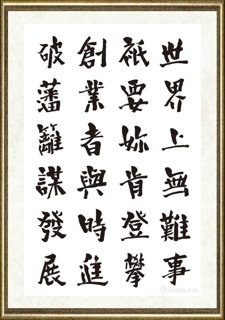 世界上無難事
祇要妳肯登攀
創業者與時進
破藩籬謀發展